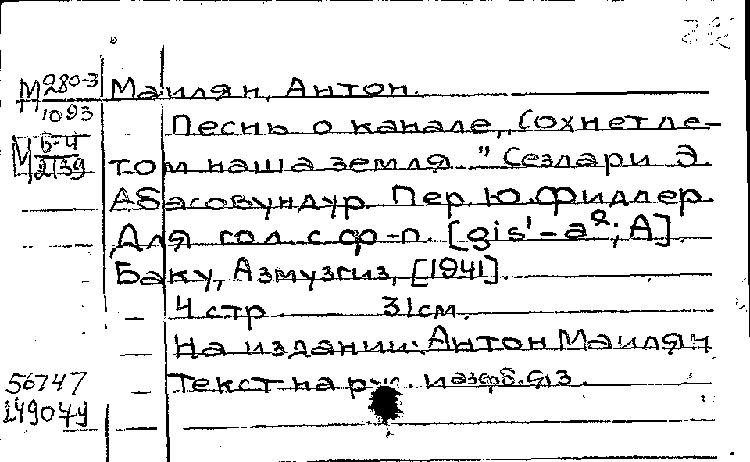 М 280-3
1093
Маилян, Антон.
Песнь о канале „Сохнет ле-
М Б-4
2139
том наша земля." Сезлари Э.
Абасовундур. Пер. Ю. Фидлер.
Для гол. с ф-п. [gis¹-a²; A]
Баку, Азмузгиз, [1941].
4 стр. 31 см.
На издании: Антон Маилян
56747
Текст на рус. и азерб. яз.
149049